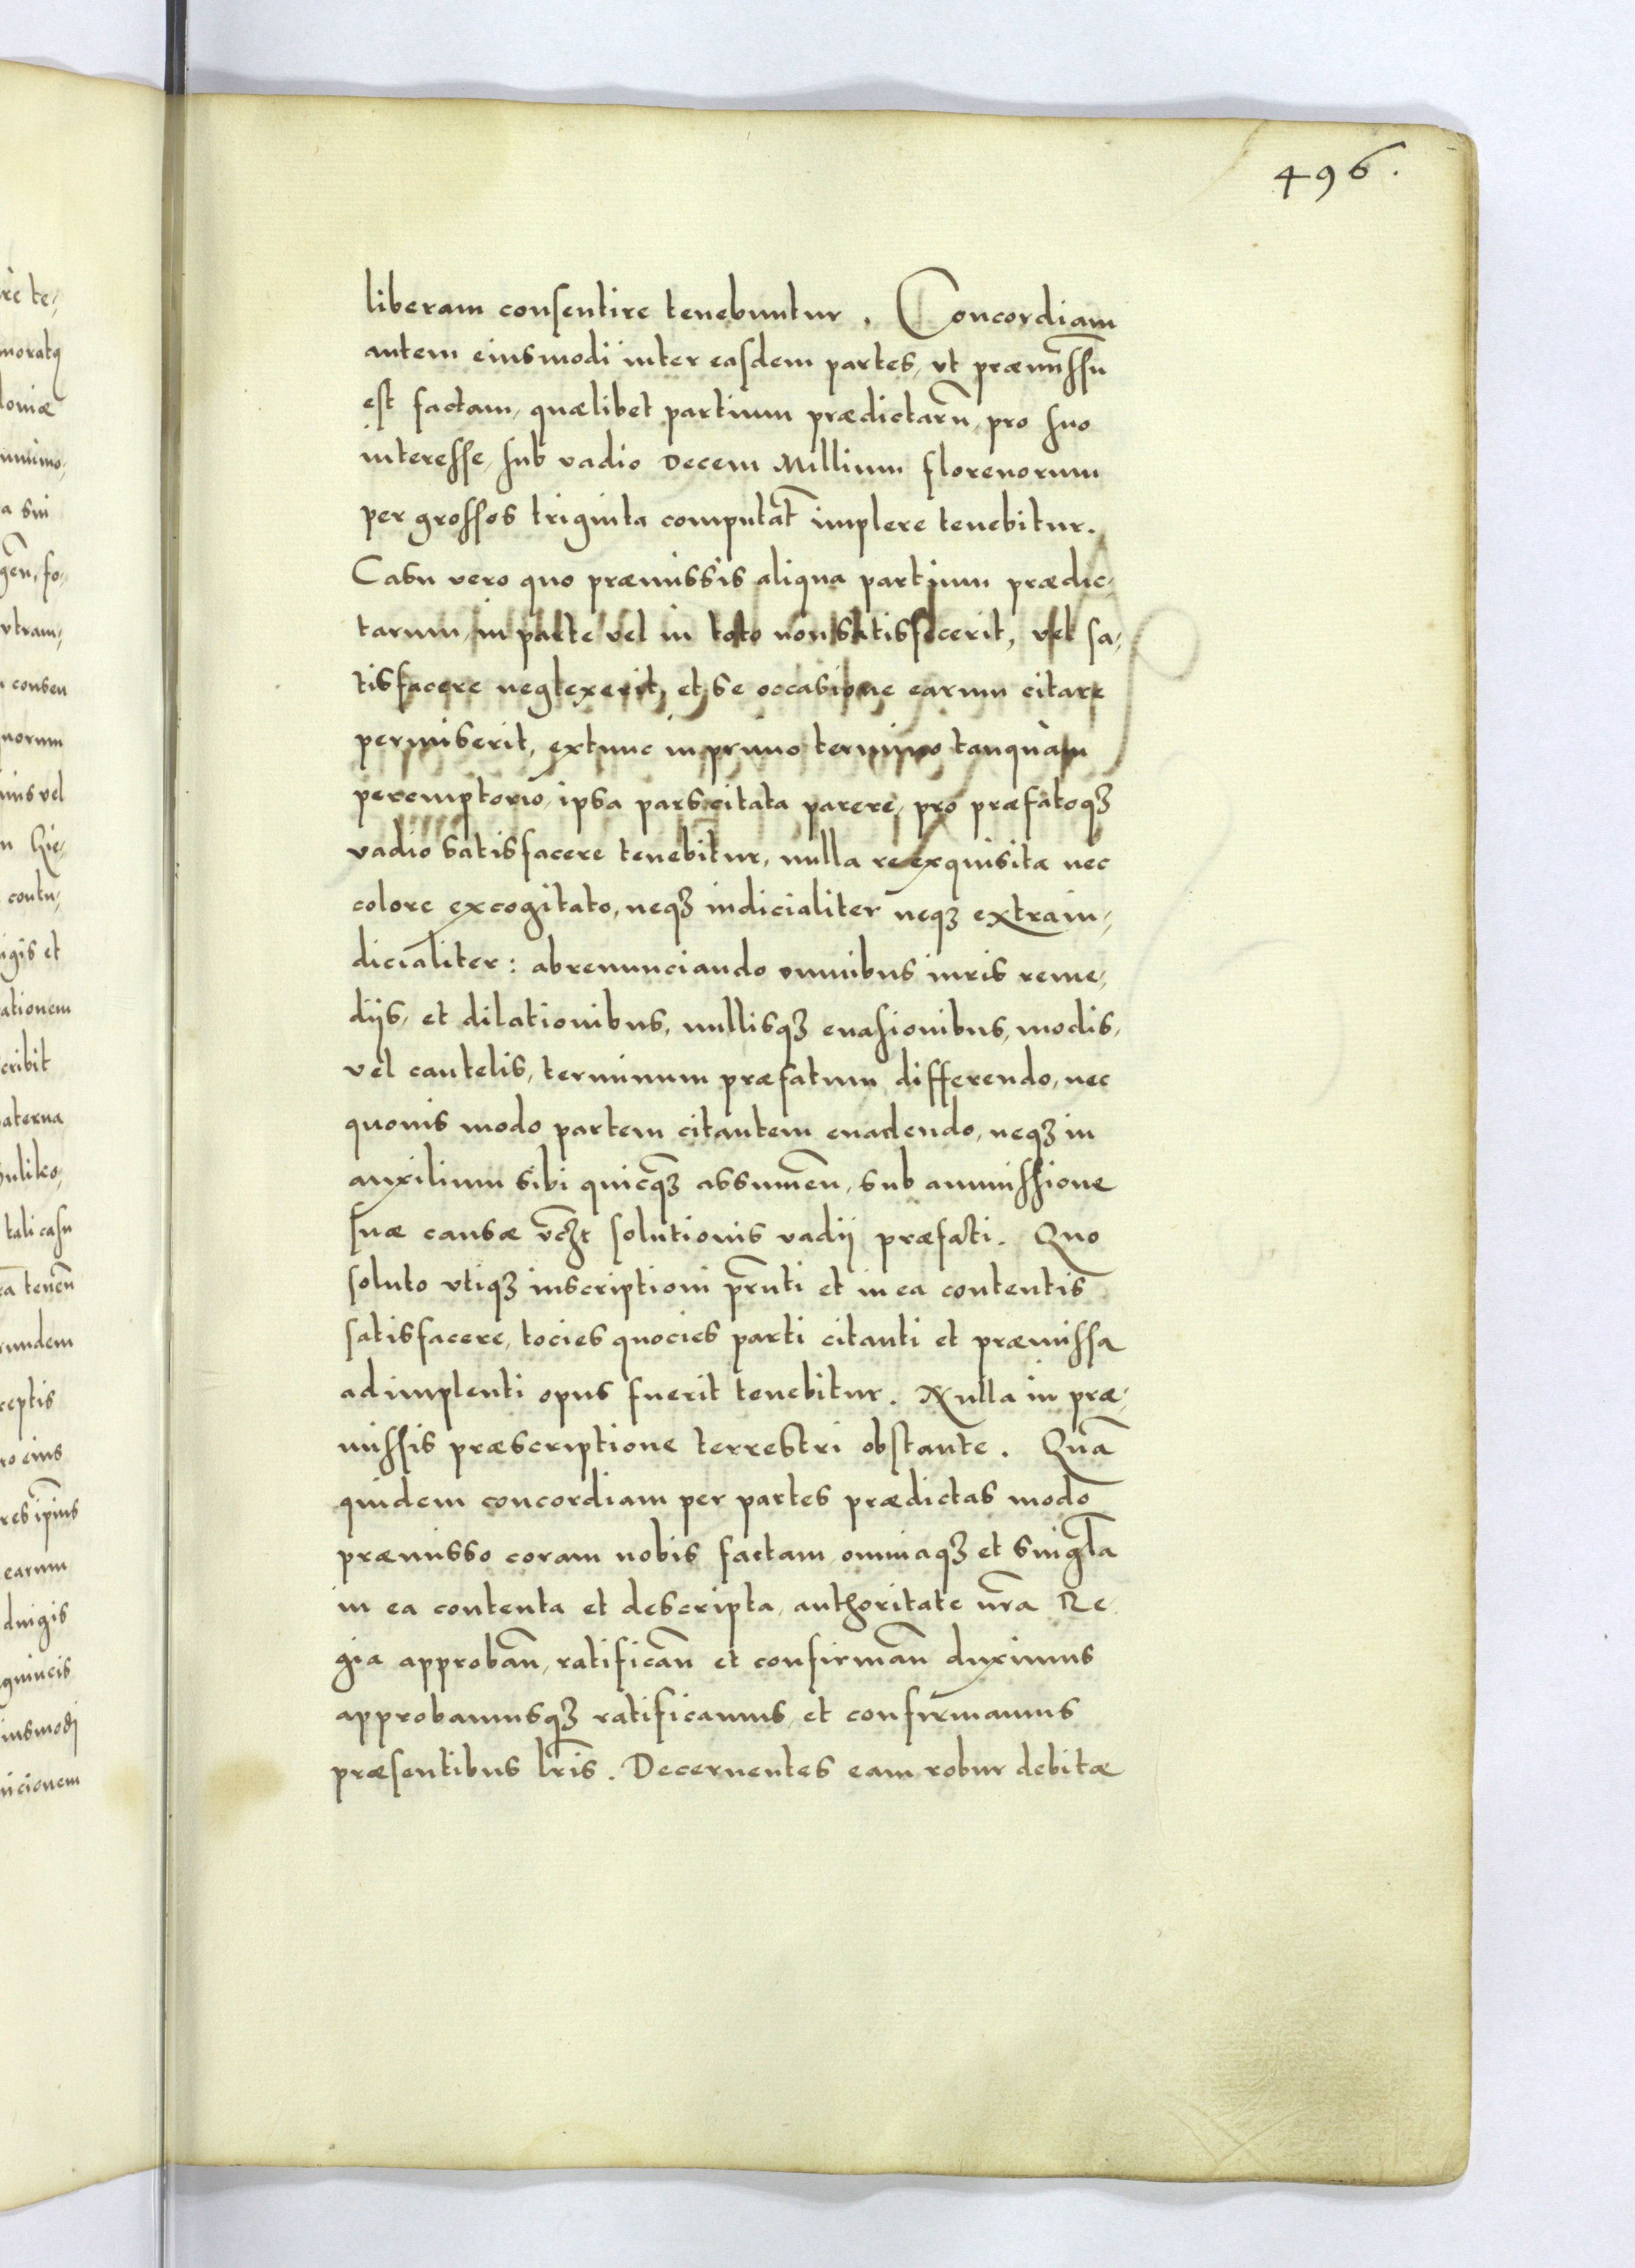 496.
liberam consentire tenebuntur. Concordiam
autem eiusmodi inter easdem partes, vt præmissũ
est factam, quælibet partium prædictarũ, pro suo
interesse, sub vadio Decem Millium florenorum
per grossos triginta computat̃ implere tenebitur.
Casu vero quo præmissis aliqua partium prædic,
tarum, in parte vel in toto non satisfecerit, vel sa,
tisfacere neglexerit, et se occasione earum citare
permiserit, extunc in primo termino tanquàm
peremptorio, ipsa pars citata parere, pro præfatoqȝ
vadio satisfacere tenebitur, nulla re exquisita nec
colore excogitato, neqȝ iudicialiter neqȝ extraiu,
dicialiter: abrenunciando omnibus iuris reme,
dijs, et dilationibus, nullisqȝ euasionibus, modis,
vel cautelis, terminum præfatum differendo, nec
quouis modo partem citantem euadendo, neqȝ in
auxilium sibi quicq̃ȝ assumeñ, sub ammissione
suæ causæ vcȝt̃ solutionis vadij præfati. Quo
soluto vtiqȝ inscriptioni pr̃nti et in ea contentis
satisfacere, tocies quocies parti citanti et præmissa
adimplenti opus fuerit tenebitur. Nulla in præ,
missis præscriptione terrestri obstante. Quã
quidem concordiam per partes prædictas modo
præmisso coram nobis factam, omniaqȝ et singl̃a
in ea contenta et descripta, authoritate nr̃a Re
gia approbañ, ratificañ et confirmañ duximus
approbamusqȝ ratificamus, et confirmamus
præsentibus lr̃is. Decernentes eam robur debitæ